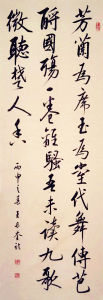 芳蘭為席玉為堂代舞傳芭
酹國殤一卷離騷吾未讀九歌
微聽楚人香
丙申之春